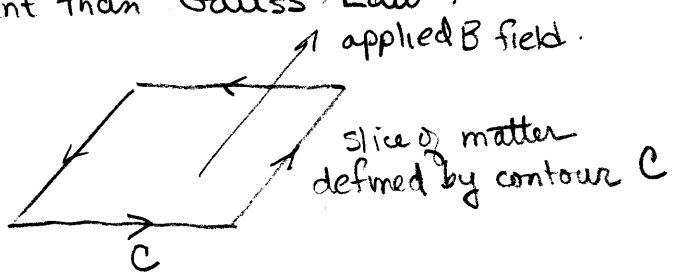 nt than Gauss Law.
applied B field.
slice of matter
defined by contour C
C